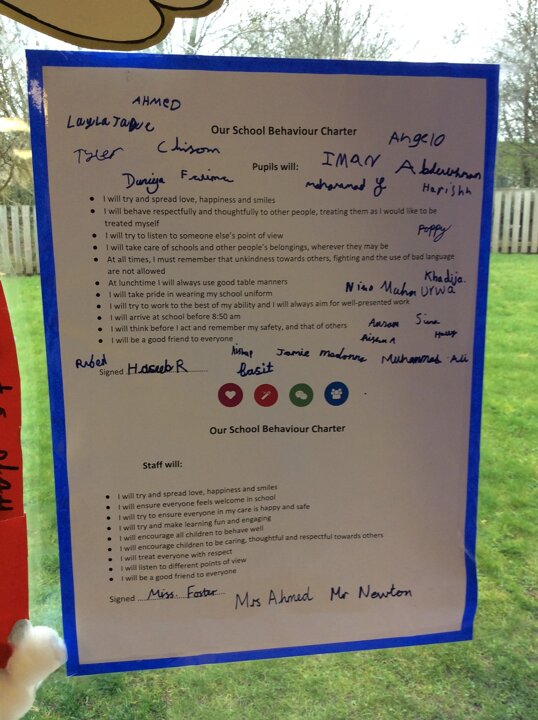 AHMED
Layla Jade
Our School Behaviour Charter
Angelo
Tyler Chisom
Pupils will:
IMAN Abdurahman
Duniya Fatima mohammad y Harishh
I will try and spread love, happiness and smiles
I will behave respectfully and thoughtfully to other people, treating them as I would like to be
treated myself
Poppy
I will try to listen to someone else's point of view
I will take care of schools and other people's belongings, wherever they may be
At all times, I must remember that unkindness towards others, fighting and the use of bad language
are not allowed
Khadija
At lunchtime I will always use good table manners
Maha Urwa
I will take pride in wearing my school uniform
I will try to work to the best of my ability and I will always aim for well-presented work
I will arrive at school before 8:50 am
I will think before I act and remember my safety, and that of others
I will be a good friend to everyone
Signed Haseeb R
Basit Jamie Madonna Muhammad Ali
Our School Behaviour Charter
Staff will:
I will try and spread love, happiness and smiles
I will ensure everyone feels welcome in school
I will try to ensure everyone in my care is happy and safe
I will try and make learning fun and engaging
I will encourage all children to behave well
I will encourage children to be caring, thoughtful and respectful towards others
I will treat everyone with respect
I will listen to different points of view
I will be a good friend to everyone
Signed Miss. Foster Mrs Ahmed Mr Newton